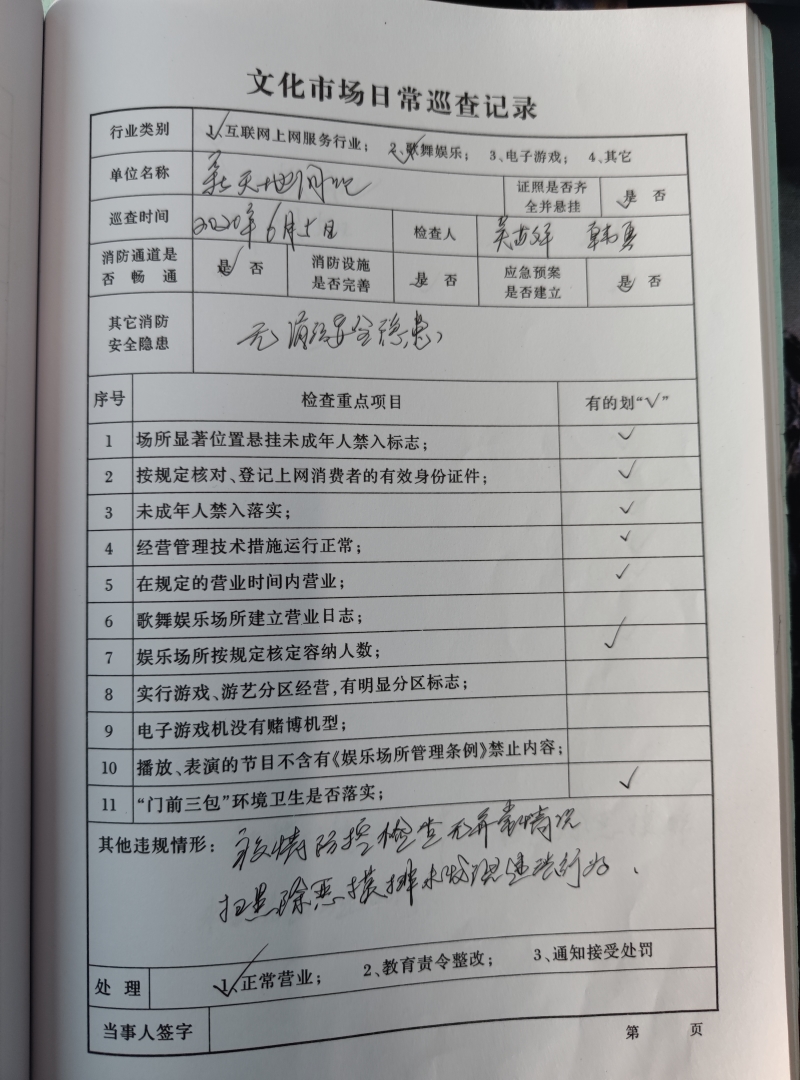 文化市场日常巡查记录
行业类别 1、互联网上网服务行业； 2、歌舞娱乐； 3、电子游戏； 4、其它
单位名称 新天地网吧 证照是否齐全并悬挂 是 否
巡查时间 2020年6月5日 检查人 韩勇
消防通道是否畅通 是 否 消防设施是否完善 是 否 应急预案是否建立 是 否
其它消防安全隐患 无消防安全隐患
序号 检查重点项目 有的划“√”
1 场所显著位置悬挂未成年人禁入标志； √
2 按规定核对、登记上网消费者的有效身份证件； √
3 未成年人禁入落实； √
4 经营管理技术措施运行正常； √
5 在规定的营业时间内营业； √
6 歌舞娱乐场所建立营业日志；
7 娱乐场所按规定核定容纳人数； √
8 实行游戏、游艺分区经营，有明显分区标志；
9 电子游戏机没有赌博机型；
10 播放、表演的节目不含有《娱乐场所管理条例》禁止内容；
11 “门前三包”环境卫生是否落实； √
其他违规情形： 疫情防控检查无异常情况
扫黑除恶摸排未发现违法行为.
处理 1、正常营业； 2、教育责令整改； 3、通知接受处罚
当事人签字
第 页